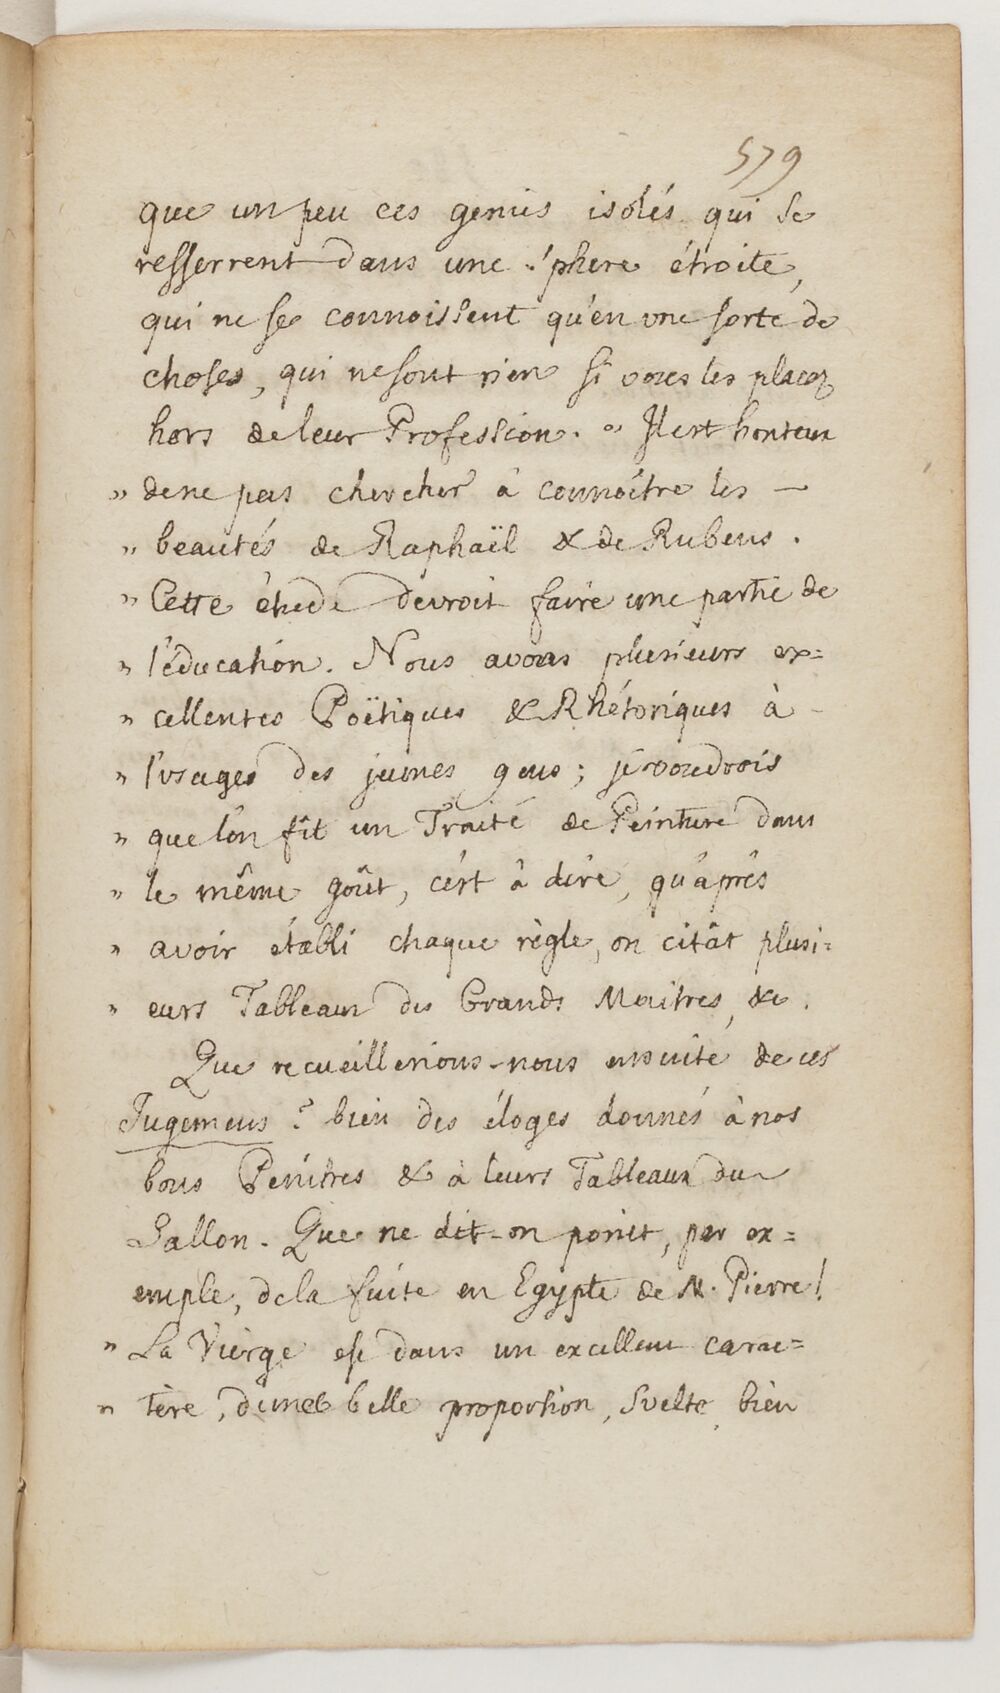 579
que un peu ces genies isolés qui se
resserrent dans une sphere étroite,
qui ne se connoissent qu'en une sorte de
choses, qui ne sont rien si vous les placez
hors de leur Profession. " Il est honteux
" de ne pas chercher à connoître les —
" beautés de Raphaël & de Rubens.
" Cette étude devroit faire une partie de
" l'éducation. Nous avons plusieurs ex=
" cellentes Poëtiques & Rhétoriques à
" l'usages des jeunes gens ; je voudrois
" que l'on fît un Traité de Peinture dans
" le même goût, c'est à dire, qu'après
" avoir établi chaque règle, on citât plusi=
" eurs Tableaux des Grands Maitres, &c.
Que recueillerions-nous ensuite de ces
Jugemens ? bien des éloges donnés à nos
bons Peintres & à leurs Tableaux du
Sallon. Que ne dit-on point, par ex=
emple, de la fuite en Egypte de M. Pierre !
" La Vierge est dans un excellent carac=
" tère, d'une belle proportion, svelte, bien